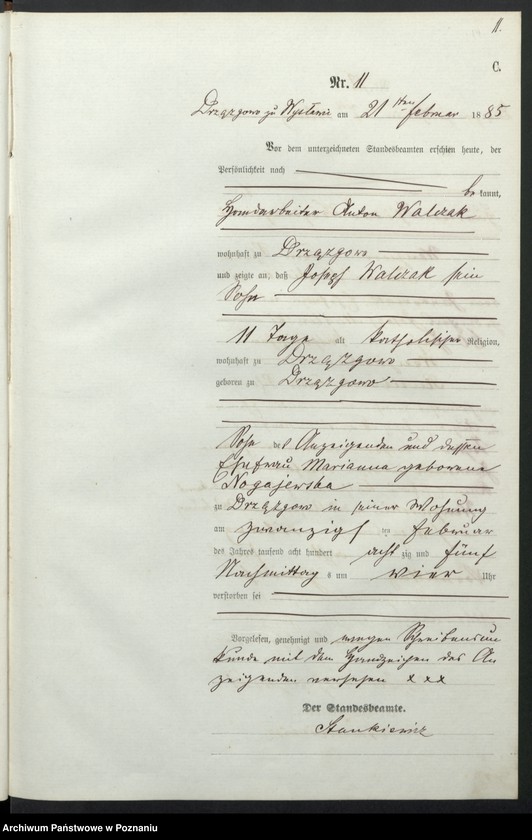 11.
C.
Nr. 11
Drzązgowo zu Wysławi am 21ten Februar 1885
Vor dem unterzeichneten Standesbeamten erschien heute, der
Persönlichkeit nach
bekannt,
Handarbeiter Anton Walczak
wohnhaft zu Drzązgowo
und zeigte an, daß Joseph Walczak sein
Sohn
11 Tage alt katholischer Religion,
wohnhaft zu Drzązgowo
geboren zu Drzązgowo
Sohn des Anzeigenden und dessen
Ehefrau Marianna geborene
Nogajewska
zu Drzązgowo in seiner Wohnung
am zwanzigsten Februar
des Jahres tausend acht hundert achtzig und fünf
Nachmittags um vier Uhr
verstorben sei
Vorgelesen, genehmigt und wegen Schreibensun
kunde mit dem Handzeichen des An
zeigenden versehen x x x
Der Standesbeamte.
Stankiewicz
Archiwum Państwowe w Poznaniu